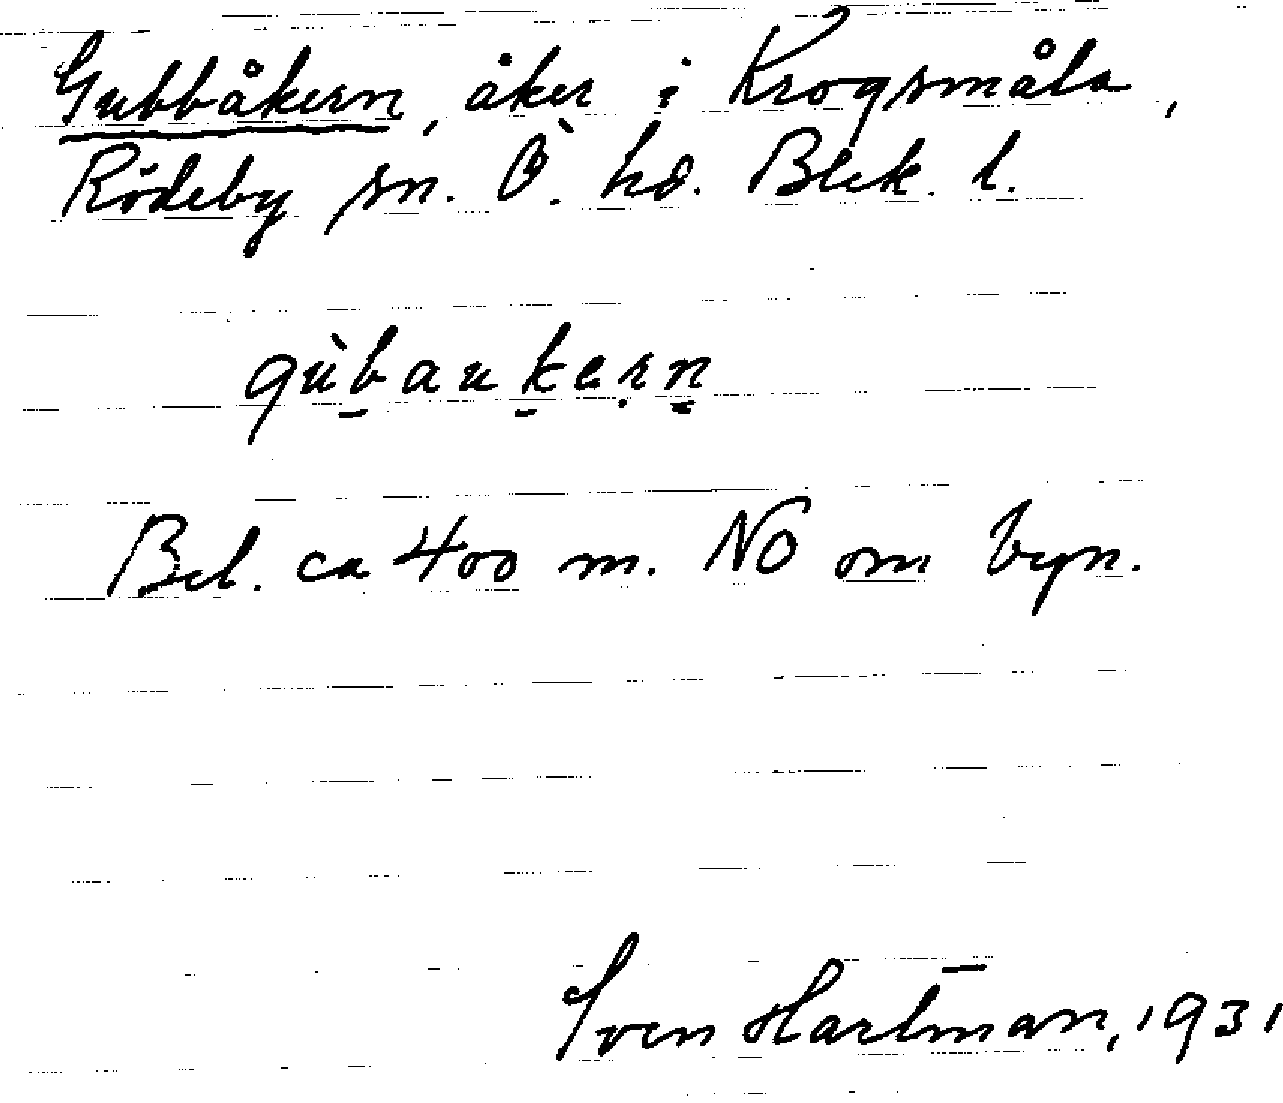 Gubbåkern, åker i Krogsmåla,
Rödeby sn. Ö. hd. Blek. l.
gùb̠auk̠eṛn̠
Bel. ca 400 m. NO om byn.
Sven Hartman, 1931